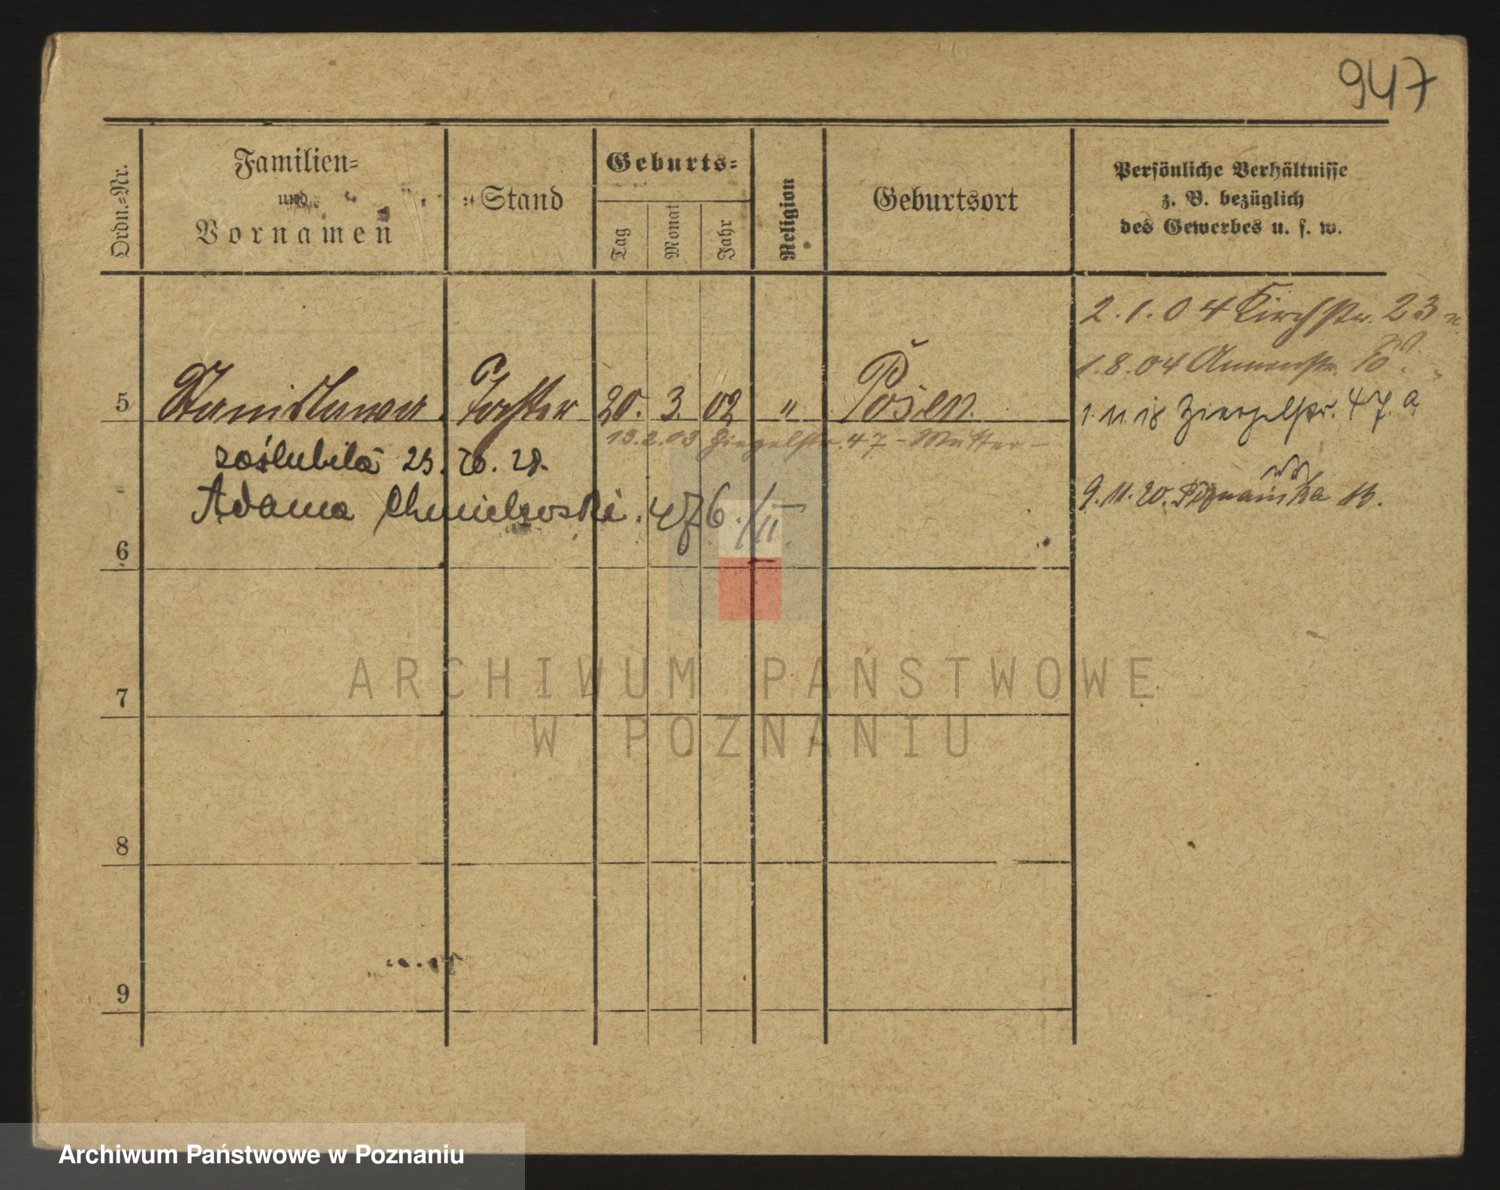 947
Ordn.-Nr.
Familien-
und
Vornamen
Stand
Geburts-
Tag
Monat
Jahr
Religion
Geburtsort
Persönliche Verhältnisse
z. B. bezüglich
des Gewerbes u. s. w.
2.1.04 Kirchstr. 23
1.8.04 Annenstr. 10
5 Stanislawa Tochter 20. 3. 02 " Posen
1.11.18 Ziegelstr. 47.a
13.2.03 Ziegelstr. 47 - Mutter -
zaślubiła 23. 10. 28.
9.11.20. Poznańska 13.
Adama Chmielewski. 476./II
6
7
8
9
ARCHIWUM PAŃSTWOWE
W POZNANIU
Archiwum Państwowe w Poznaniu